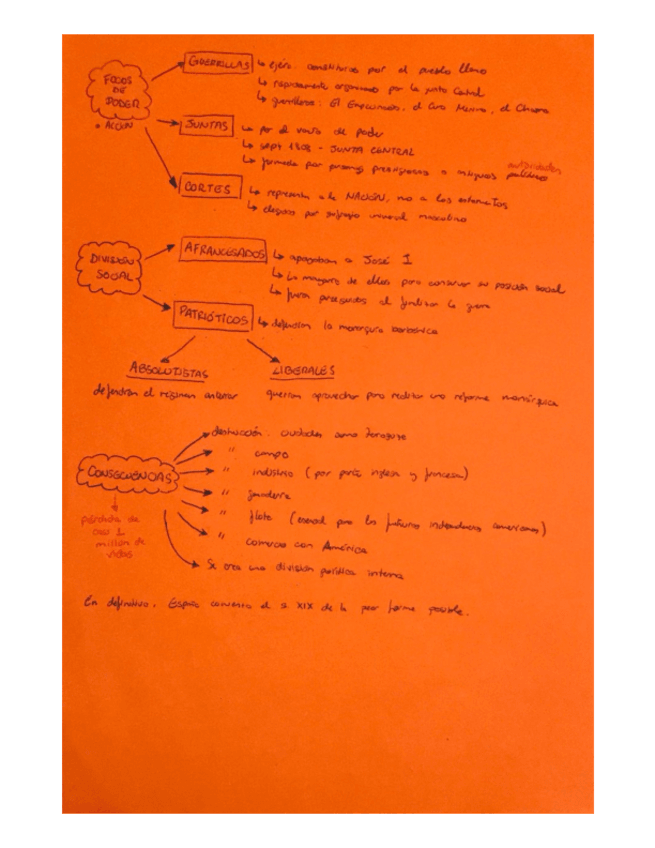 FOCOS DE PODER
* ACCIÓN
GUERRILLAS
↳ ejérc. constituidos por el pueblo llano
↳ rápidamente organizado por la Junta Central
↳ guerrilleros: El Empecinado, el Cura Merino, el Charro
JUNTAS
↳ por el vacío de poder
↳ sept 1808 - JUNTA CENTRAL
↳ formada por personas prestigiosas o antiguos políticos
autoridades
CORTES
↳ representa a la NACIÓN, no a los estamentos
↳ elegidos por sufragio universal masculino
DIVISIÓN SOCIAL
AFRANCESADOS
↳ apoyaban a José I
↳ La mayoría de ellos para conservar su posición social
↳ fueron perseguidos al finalizar la guerra
PATRIÓTICOS
↳ defendían la monarquía borbónica
ABSOLUTISTAS
defendían el régimen anterior
LIBERALES
querían aprovechar para realizar una reforma monárquica
CONSECUENCIAS
pérdida de casi 1 millón de vidas
destrucción: ciudades como Zaragoza
" campo
" industria (por parte inglesa y francesa)
" ganadería
" flota (esencial para las futuras independencias americanas)
" comercio con América
Se crea una división política interna
En definitiva, España comienza el s. XIX de la peor forma posible.